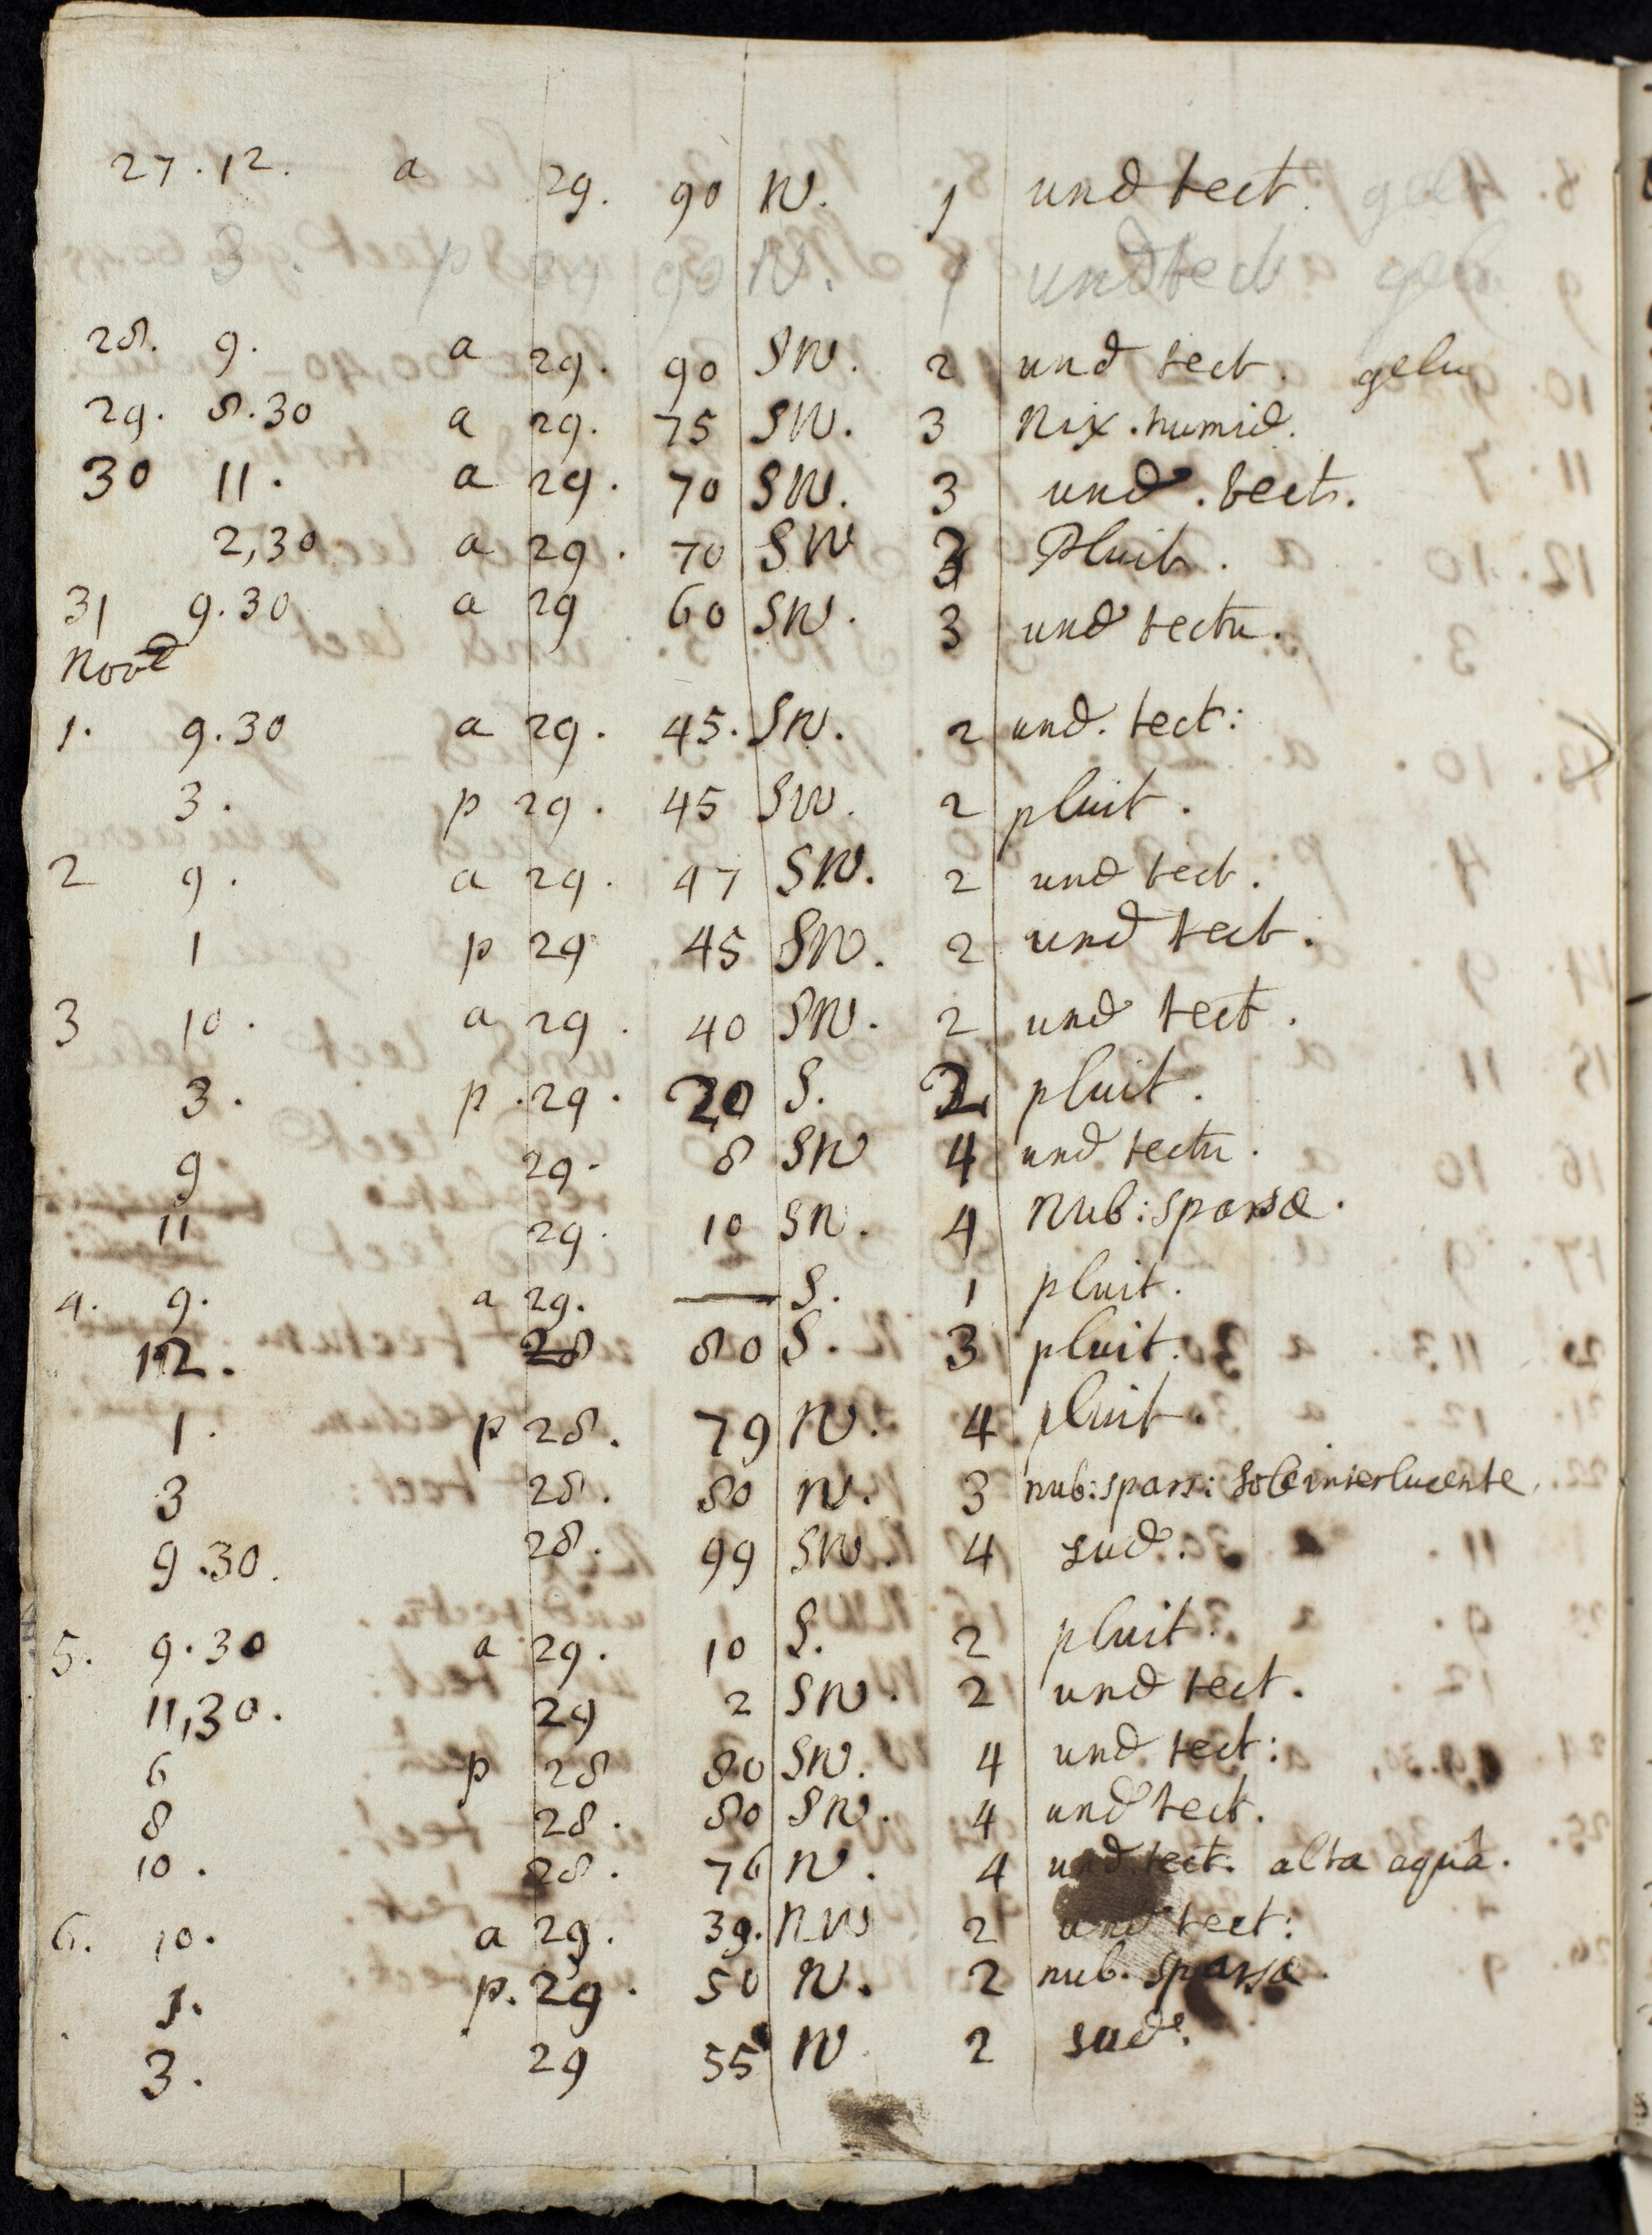 27. 12. a 29. 90 W. 1 und tect. gelu
3. p 29 90 W. 1 und tect gelu
28. 9. a 29. 90 SW. 2 und tect. gelu
29. 8.30 a 29. 75 SW. 3 Nix. humid.
30 11. a 29. 70 SW. 3 und. tect.
2,30 a 29. 70 SW 3 Pluit.
31 9.30 a 29 60 SW. 3 und tectu.
Nov
1. 9.30 a 29. 45. SW. 2 und. tect:
3. p 29. 45 SW. 2 pluit.
2 9. a 29. 47 SW. 2 und tect.
1 p 29 45 SW. 2 und tect.
3 10. a 29. 40 SW. 2 und tect.
3. p. 29. 20 S. 2 pluit.
9 29. 8 SW 4 und tectu.
11 29. 10 SW. 4 Nub: sparsa.
4. 9. a 29. — S. 1 pluit.
12. 28 80 S. 3 pluit.
1. p 28. 79 W. 4 pluit.
3 28. 80 W. 3 nub: spars: Sole interlucente.
9.30. 28. 99 SW. 4 sud.
5. 9.30 a 29. 10 S. 2 pluit.
11,30. 29 2 SW. 2 und tect.
6 p 28 80 SW. 4 und tect:
8 28. 80 SW. 4 und tect.
10. 28. 76 W. 4 und tect. alta aquâ.
6. 10. a 29. 39. NW 2 und tect:
1. p. 29. 50 W. 2 nub. sparsa.
3. 29 55 W 2 sud.